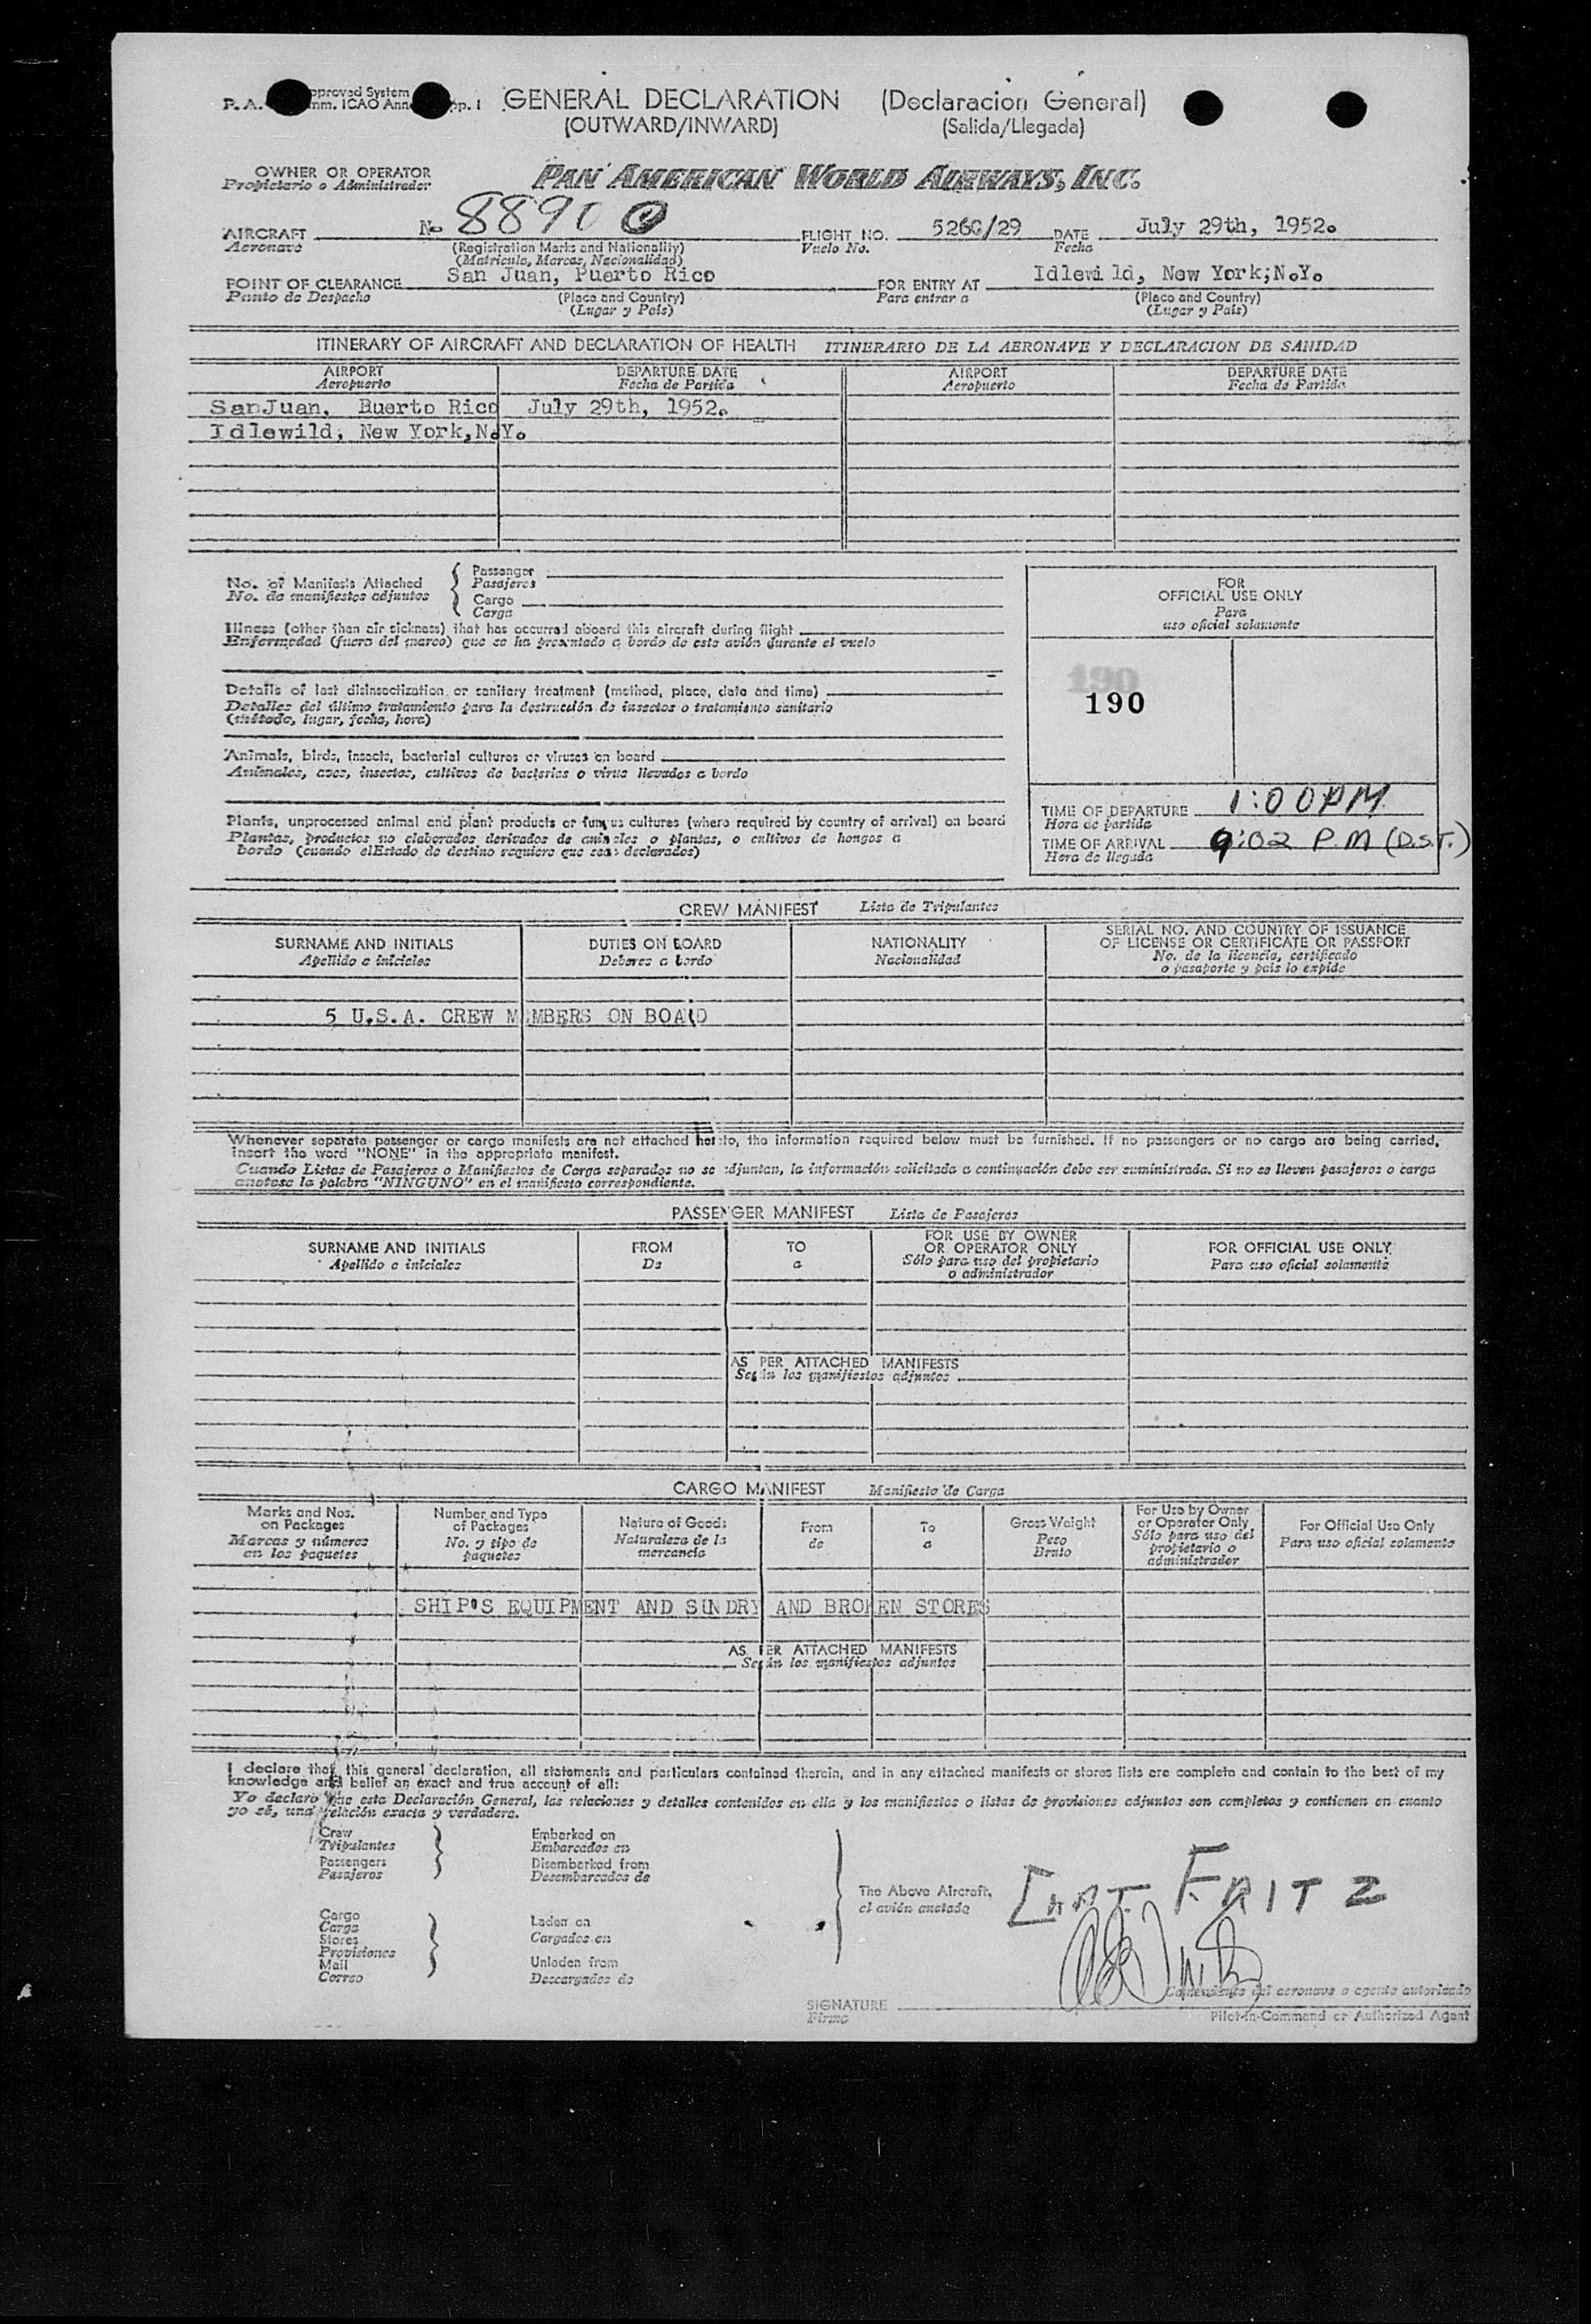 P. A.
pproved System
mm. ICAO Ann pp. 1
GENERAL DECLARATION (Declaracion General)
(OUTWARD/INWARD) (Salida/Llegada)
OWNER OR OPERATOR
Propietario o Administrador
PAN AMERICAN WORLD AIRWAYS, INC.
AIRCRAFT No 8890 FLIGHT NO. 526G/29 DATE July 29th, 1952.
Aeronave (Registration Marks and Nationality) Vuelo No. Fecha
(Matricula, Marcas, Nacionalidad)
POINT OF CLEARANCE San Juan, Puerto Rico FOR ENTRY AT Idlewild, New York;N.Y.
Punto de Despacho (Place and Country) Para entrar a (Place and Country)
(Lugar y Pais) (Lugar y Pais)
ITINERARY OF AIRCRAFT AND DECLARATION OF HEALTH ITINERARIO DE LA AERONAVE Y DECLARACION DE SANIDAD
AIRPORT DEPARTURE DATE AIRPORT DEPARTURE DATE
Aeropuerto Fecha de Partida Aeropuerto Fecha de Partida
SanJuan, Puerto Rico July 29th, 1952.
Idlewild, New York,N.Y.
No. of Manifests Attached
No. de manifiestos adjuntos
Passenger
Pasajeros
Cargo
Carga
Illness (other than air sickness) that has occurred aboard this aircraft during flight
Enfermedad (fuera del mareo) que se ha presentado a bordo de este avión durante el vuelo
Details of last disinsectization or sanitary treatment (method, place, date and time)
Detalles del último tratamiento para la destrucción de insectos o tratamiento sanitario
(método, lugar, fecha, hora)
Animals, birds, insects, bacterial cultures or viruses on board
Animales, aves, insectos, cultivos de bacterias o virus llevados a bordo
Plants, unprocessed animal and plant products or fungus cultures (where required by country of arrival) on board
Plantas, productos no elaborados derivados de animales o plantas, o cultivos de hongos a
bordo (cuando elEstado de destino requiere que sean declarados)
FOR
OFFICIAL USE ONLY
Para
uso oficial solamente
190
190
TIME OF DEPARTURE 1:00PM
Hora de partida
TIME OF ARRIVAL 9:02 P.M (D.S.T.)
Hora de llegada
CREW MANIFEST Lista de Tripulantes
SURNAME AND INITIALS DUTIES ON BOARD NATIONALITY SERIAL NO. AND COUNTRY OF ISSUANCE
OF LICENSE OR CERTIFICATE OR PASSPORT
Apellido e iniciales Deberes a bordo Nacionalidad No. de la licencia, certificado
o pasaporte y pais lo expide
5 U.S.A. CREW MEMBERS ON BOARD
Whenever separate passenger or cargo manifests are not attached hereto, the information required below must be furnished. If no passengers or no cargo are being carried,
insert the word "NONE" in the appropriate manifest.
Cuando Listas de Pasajeros o Manifiestos de Carga separados no se adjuntan, la información solicitada a continuación debe ser suministrada. Si no se lleven pasajeros o carga
anotese la palabra "NINGUNO" en el manifiesto correspondiente.
PASSENGER MANIFEST Lista de Pasajeros
SURNAME AND INITIALS FROM TO FOR USE BY OWNER
OR OPERATOR ONLY FOR OFFICIAL USE ONLY
Apellido e iniciales De a Sólo para uso del propietario
o administrador Para uso oficial solamente
AS PER ATTACHED MANIFESTS
Según los manifiestos adjuntos
CARGO MANIFEST Manifiesto de Carga
Marks and Nos.
on Packages
Marcas y números
en los paquetes
Number and Type
of Packages
No. y tipo de
paquetes
Nature of Goods
Naturaleza de la
mercancia
From
de
To
a
Gross Weight
Peso
Bruto
For Use by Owner
or Operator Only
Sólo para uso del
propietario o
administrador
For Official Use Only
Para uso oficial solamente
SHIP'S EQUIPMENT AND SUNDRY AND BROKEN STORES
AS PER ATTACHED MANIFESTS
Según los manifiestos adjuntos
I declare that this general declaration, all statements and particulars contained therein, and in any attached manifests or stores lists are complete and contain to the best of my
knowledge and belief an exact and true account of all:
Yo declaro que esta Declaración General, las relaciones y detalles contenidos en ella y los manifiestos o listas de provisiones adjuntos son completos y contienen en cuanto
yo sé, una relación exacta y verdadera.
Crew
Tripulantes
Passengers
Pasajeros
Embarked on
Embarcados en
Disembarked from
Desembarcados de
Cargo
Carga
Stores
Provisiones
Mail
Correo
Laden on
Cargados en
Unladen from
Descargados de
The Above Aircraft.
el avión anotado
CAPT. FRITZ
SIGNATURE
Firma
Comandante del aeronave o agente autorizado
Pilot-in-Command or Authorized Agent